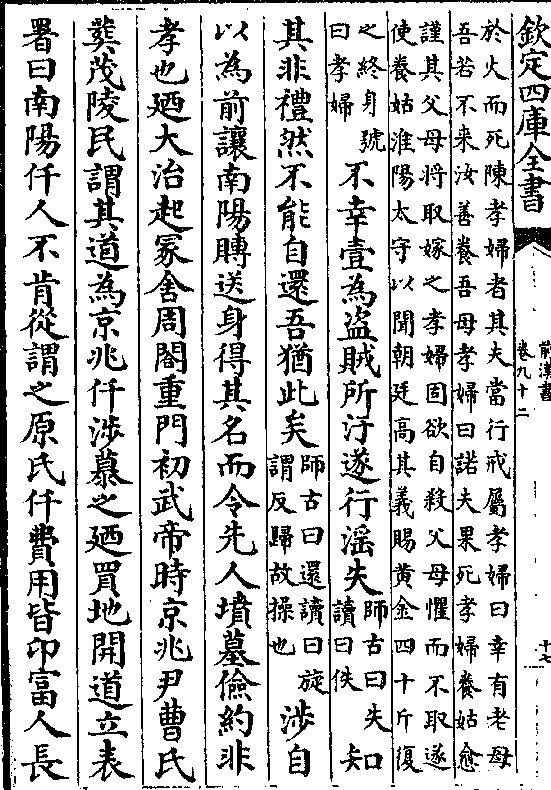 欽定四庫全書
前漢書
卷九十二
十七
於火而死陳孝婦者其夫當行戒屬孝婦曰幸有老母
吾若不来汝善養吾母孝婦曰諾夫果死孝婦養姑愈
謹其父母将取嫁之孝婦固欲自殺父母懼而不取遂
使養姑淮陽太守以聞朝廷髙其義賜黄金四十斤復
之終身號
曰孝婦
不幸壹為盗賊所汙遂行滛失
師古曰失
讀曰佚
知
其非禮然不能自還吾猶此矣
師古曰還讀曰旋
謂反歸故操也
涉自
以為前讓南陽賻送身得其名而令先人墳墓儉約非
孝也廼大治起冢舍周閣重門初武帝時京兆尹曹氏
葬茂陵民謂其道為京兆仟涉慕之廼買地開道立表
署曰南陽仟人不肯從謂之原氏仟費用皆卬富人長